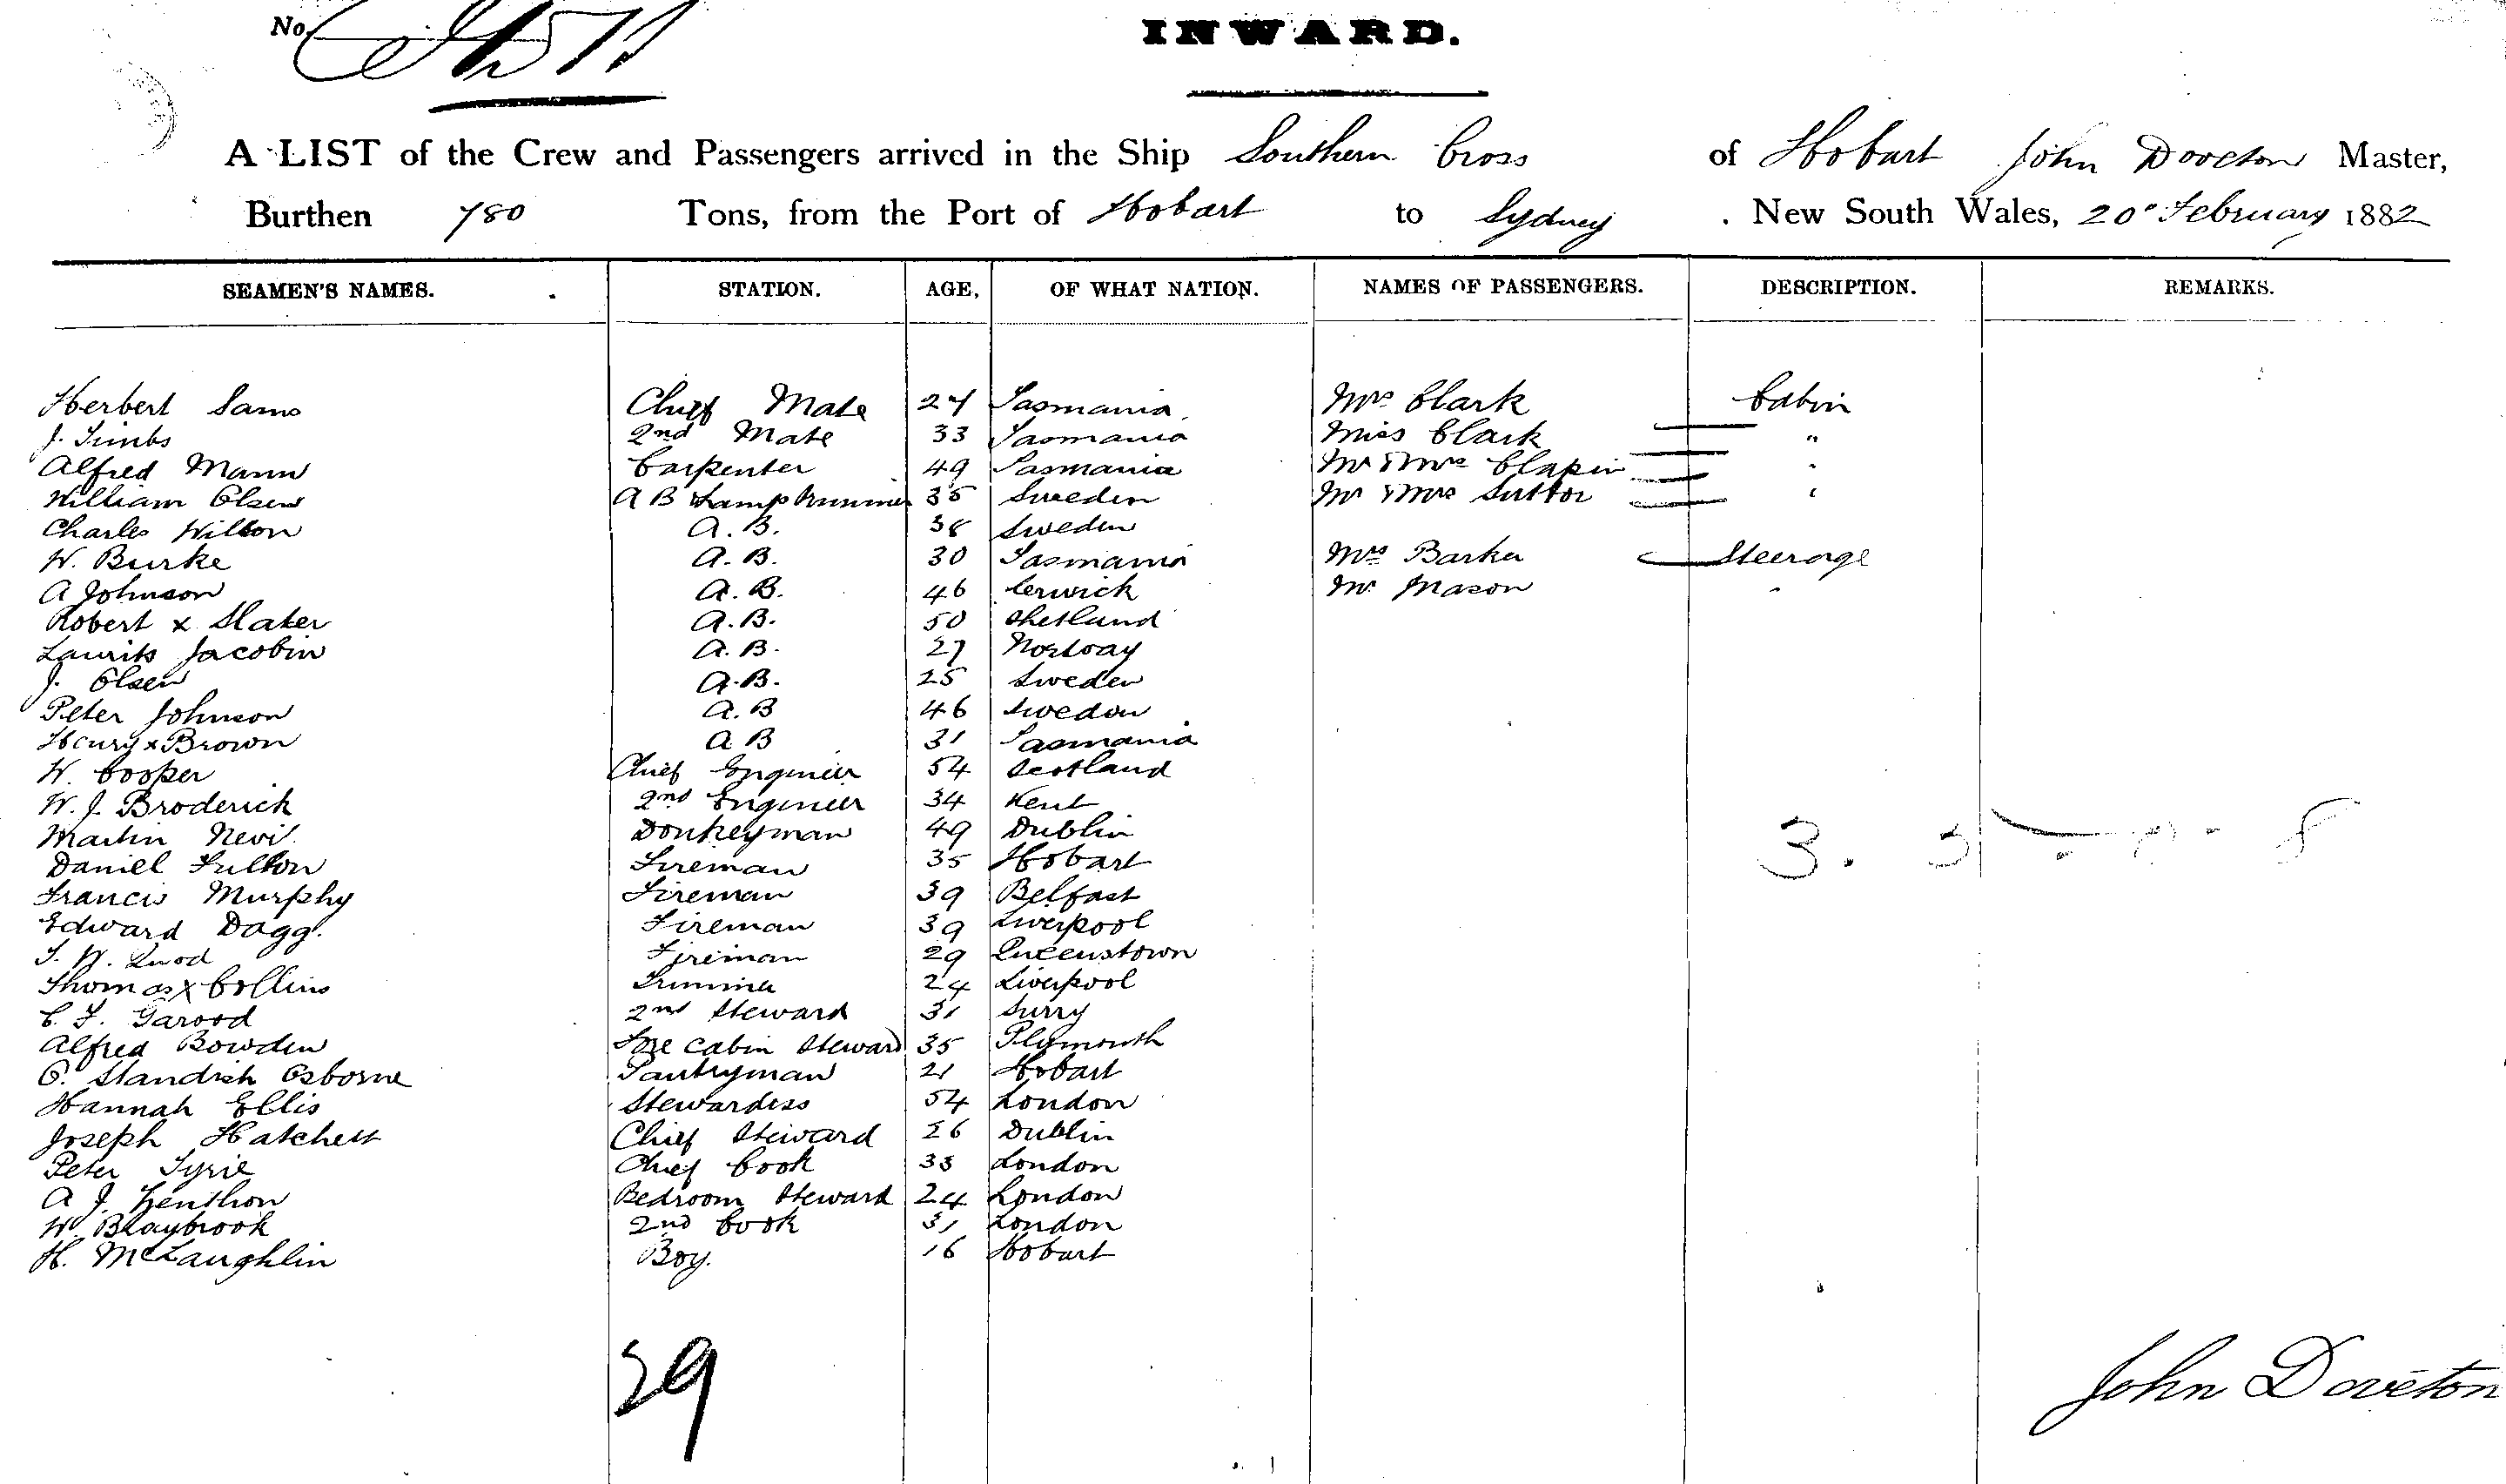 No.
INWARD.
A LIST of the Crew and Passengers arrived in the Ship Southern Cross of Hobart John Doveton Master,
Burthen 780 Tons, from the Port of Hobart to Sydney . New South Wales, 20" February 1882
SEAMEN'S NAMES. STATION. AGE, OF WHAT NATION. NAMES OF PASSENGERS. DESCRIPTION. REMARKS.
Herbert Sams Chief Mate 27 Tasmania Mrs Clark Cabin
J. Timbs 2nd Mate 33 Tasmania Miss Clark "
Alfred Mann Carpenter 49 Tasmania Mr & Mrs Clapin "
William Olsen A B Lamp Trimmer 35 Sweden Mr & Mrs Suttor "
Charles Wilton A. B. 38 Sweden
W. Burke A. B. 30 Tasmania Mrs Barker Steerage
A Johnson A. B. 46 Lerwick Mr Mason "
Robert x Slater A. B. 50 Shetland
Laurits Jacobin A. B. 27 Norway
J. Olsen A. B. 25 Sweden
Peter Johnson A. B 46 Sweden
Henry x Brown A B 31 Tasmania
W. Cooper Chief Engineer 54 Scotland
W. J. Broderick 2nd Engineer 34 Kent
Martin Nevi Donkeyman 49 Dublin
Daniel Fulton Fireman 35 Hobart
Francis Murphy Fireman 39 Belfast
Edward Dagg. Fireman 39 Liverpool
J. W. Fireman 29 Queenstown
Thomas x Collins Trimmer 24 Liverpool
C. F. Garood 2nd Steward 31 Surry
Alfred Bowden Fore Cabin Steward 35 Plymouth
O. Standish Osborne Pantryman 21 Hobart
Hannah Ellis Stewardess 54 London
Joseph Hatchett Chief Steward 26 Dublin
Peter Syrie Chief Cook 33 London
A J. Henthon Bedroom Steward 24 London
W. Blaybrook 2nd Cook 31 London
H. McLaughlin Boy. 16 Hobart
29
John Doveton